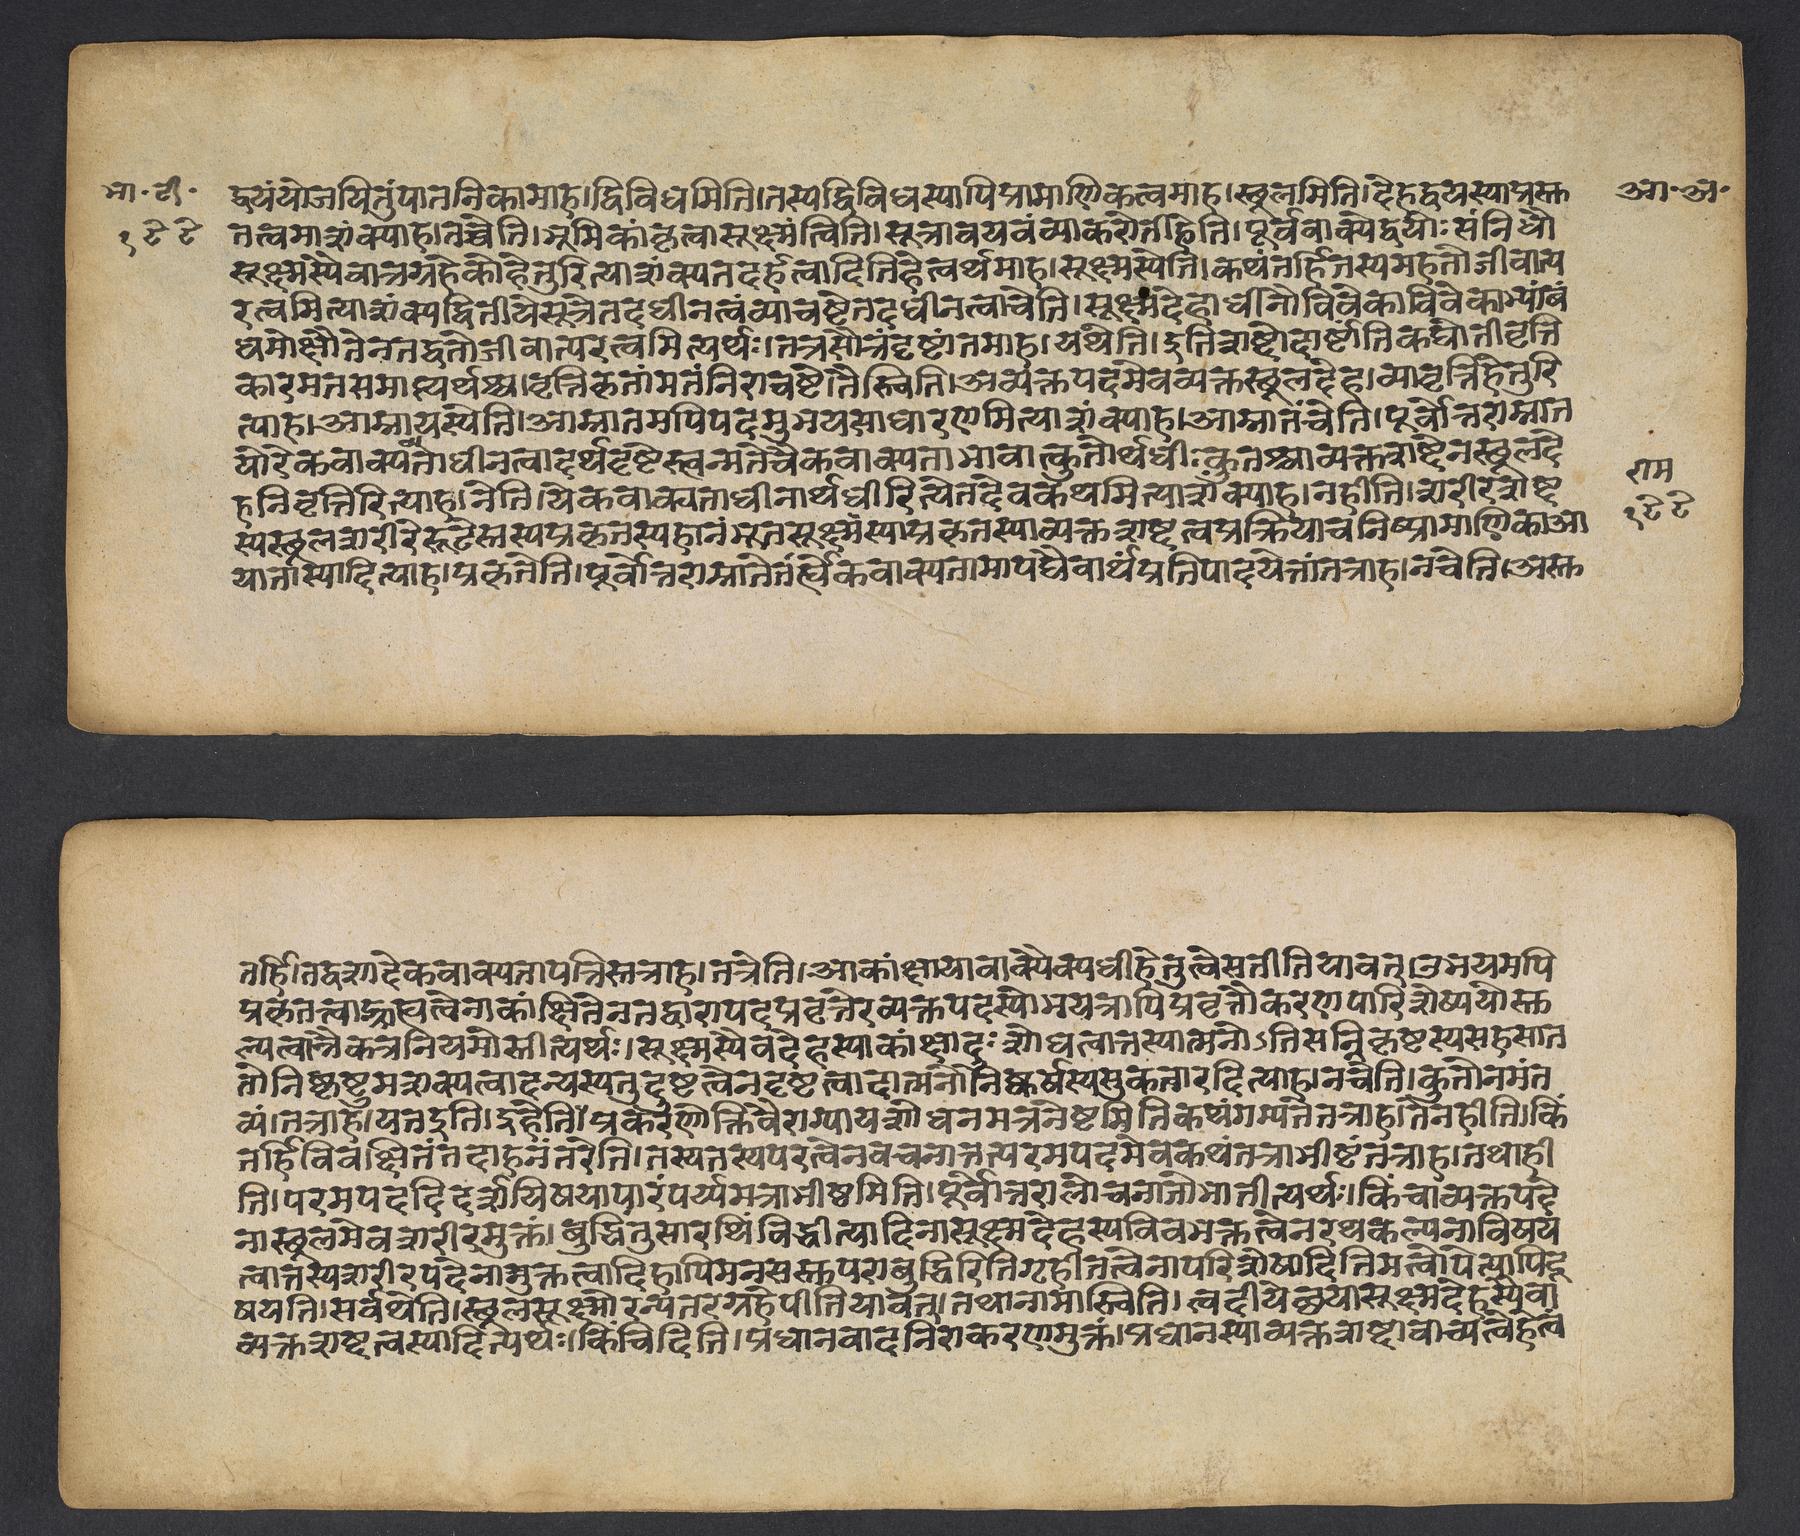 भा॰टी॰
१८८
आ॰अ॰
द्वयंयोजयितुंपातनिकामाह।द्विविधमिति।तस्यद्विविधस्यापिप्रामाणिकत्वमाह।स्थुलमिति।देहद्वयस्याप्रस्तु
तत्वमाशंक्याह।तच्चेति।भूमिकांकृत्वासूक्ष्मंत्विति।सूत्रावयवंव्याकरोतीहेति।पूर्ववाक्येद्वयोःसंनिधौ
सूक्ष्मस्येवात्रग्रहेकोहेतुरित्याशंक्यतदर्हत्वादितिहेत्वर्थमाह।सूक्ष्मस्येति।कथंतर्हितस्यमहतोजीवात्प
रत्वमित्याशंक्यद्वितीयेसूत्रेतदधीनत्वंव्याचष्टेतदधीनत्वाच्चेति।सूक्ष्मदेहाधीनोविवेकाविवेकाभ्यांबं
धमोक्षौतेनतद्वतोजीवात्परत्वमित्यर्थः।तत्रसौत्रंदृष्टांतमाह।यथेति।इतिशब्दोदार्ष्टांतिकद्योतीवृत्ति
कारमतसमाप्त्यर्थश्च।वृत्तिकृतांमतंनिराचष्टेतैस्त्विति।अव्यक्तपदमेवव्यक्तस्थुलदेह।व्यावृत्तिहेतुरि
त्याह।आम्नायस्येति।आम्नातमपिपदमुभयसाधारणमित्याशंक्याह।आम्नातंचेति।पूर्वोत्तराम्नात
योरेकवाक्यताधीनत्वादर्थदृष्टेस्त्वन्मतेचैकवाक्यताभावात्कुतोर्थधीःकुतश्चाव्यक्तशब्देनस्थुलदे
हनिवृत्तिरित्याह।नेति।येकवाक्यताधीनार्थधीरित्येतदेवकथमित्याशंक्याह।नहीति।शरीरशब्द
स्यस्थुलशरीरेरूढेस्तस्यप्रकृतस्यहानंभूतसूक्ष्मस्याप्रकृतस्याव्यक्तशब्दत्वप्रक्रियाचनिष्प्रामाणिकाआ
यातास्यादित्याह।प्रकृतेति।पूर्वोत्तराम्नातेतर्ह्येकवाक्यतामापद्यैवार्थंप्रतिपादयेत्तांतत्राह।नचेति।अस्तु
राम
१८८
तर्हितद्वशादेकवाक्यतापत्तिस्तत्राह।तत्रेति।आकांक्षायावाक्यैक्यधीहेतुत्वेसतीतियावत्।उभयमपि
प्रकृतत्वाद्ग्राह्यत्वेनाकांक्षितेनतद्वारापदप्रवृत्तेरव्यक्तपदस्योभयत्रापिप्रवृत्तौकरणपारिशेष्ययोस्तु
ल्यत्वान्नैकत्रनियमोस्तीत्यर्थः।सूक्ष्मस्यैवदेहस्याकांक्षादुःशोधत्वात्तस्यात्मनोऽतिसन्निकृष्टस्यसहसात
तोनिष्क्रष्टुमशक्यत्वादन्यस्यतुदृष्टत्वेनदृष्टत्वादात्मनोनिष्कर्षस्यसुकतारदित्याह।नचेति।कुतोनमंत
व्यं।तत्राह।यतइति।इहेति।प्रकरणोक्तिवैराग्यायशोधनमत्रनेष्टमितिकथंगम्यतेतत्राह।तेनहीति।किं
तर्हिविवक्षितंतदाहनंतरेति।तस्यतस्यपरत्वेनवचनात्तत्परमपदमेवकथंतत्राभीष्टंतत्राह।तथाही
ति।परमपददिदर्शयिषयापारंपर्य्यमत्राभीष्ठमिति।पूर्वोत्तरालोचनातोभातीत्यर्थः।किंचाव्यक्तपदे
नास्थुलमेवशरीरमुक्तं।बुद्धिंतुसारथिंविद्धीत्यादिनासूक्ष्मदेहस्यविवभक्तत्वेनरथकल्पनाविषय
त्वात्तस्यशरीरपदेनामुक्तत्वादिहापिमनसस्तुपराबुद्धिरितिगृहीतत्वेनापरिशेषादितिमत्वोपेत्यापिदू
षयति।सर्वथेति।स्थुलसूक्ष्मोरन्यतरग्रहेपीतियावत्।तथानामास्त्विति।त्वदीयेच्छयासूक्ष्मदेहस्येवा
व्यक्तशब्दत्वस्यादित्यर्थः।किंचिदिति।प्रधानवादनिराकरणमुक्तं।प्रधानस्याव्यक्तशब्दावाच्यत्वेहेत्वं